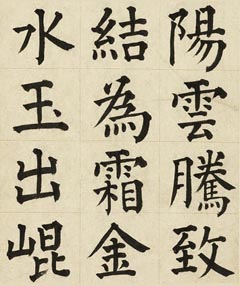 陽雲騰致
結為霜金
水玉出崐